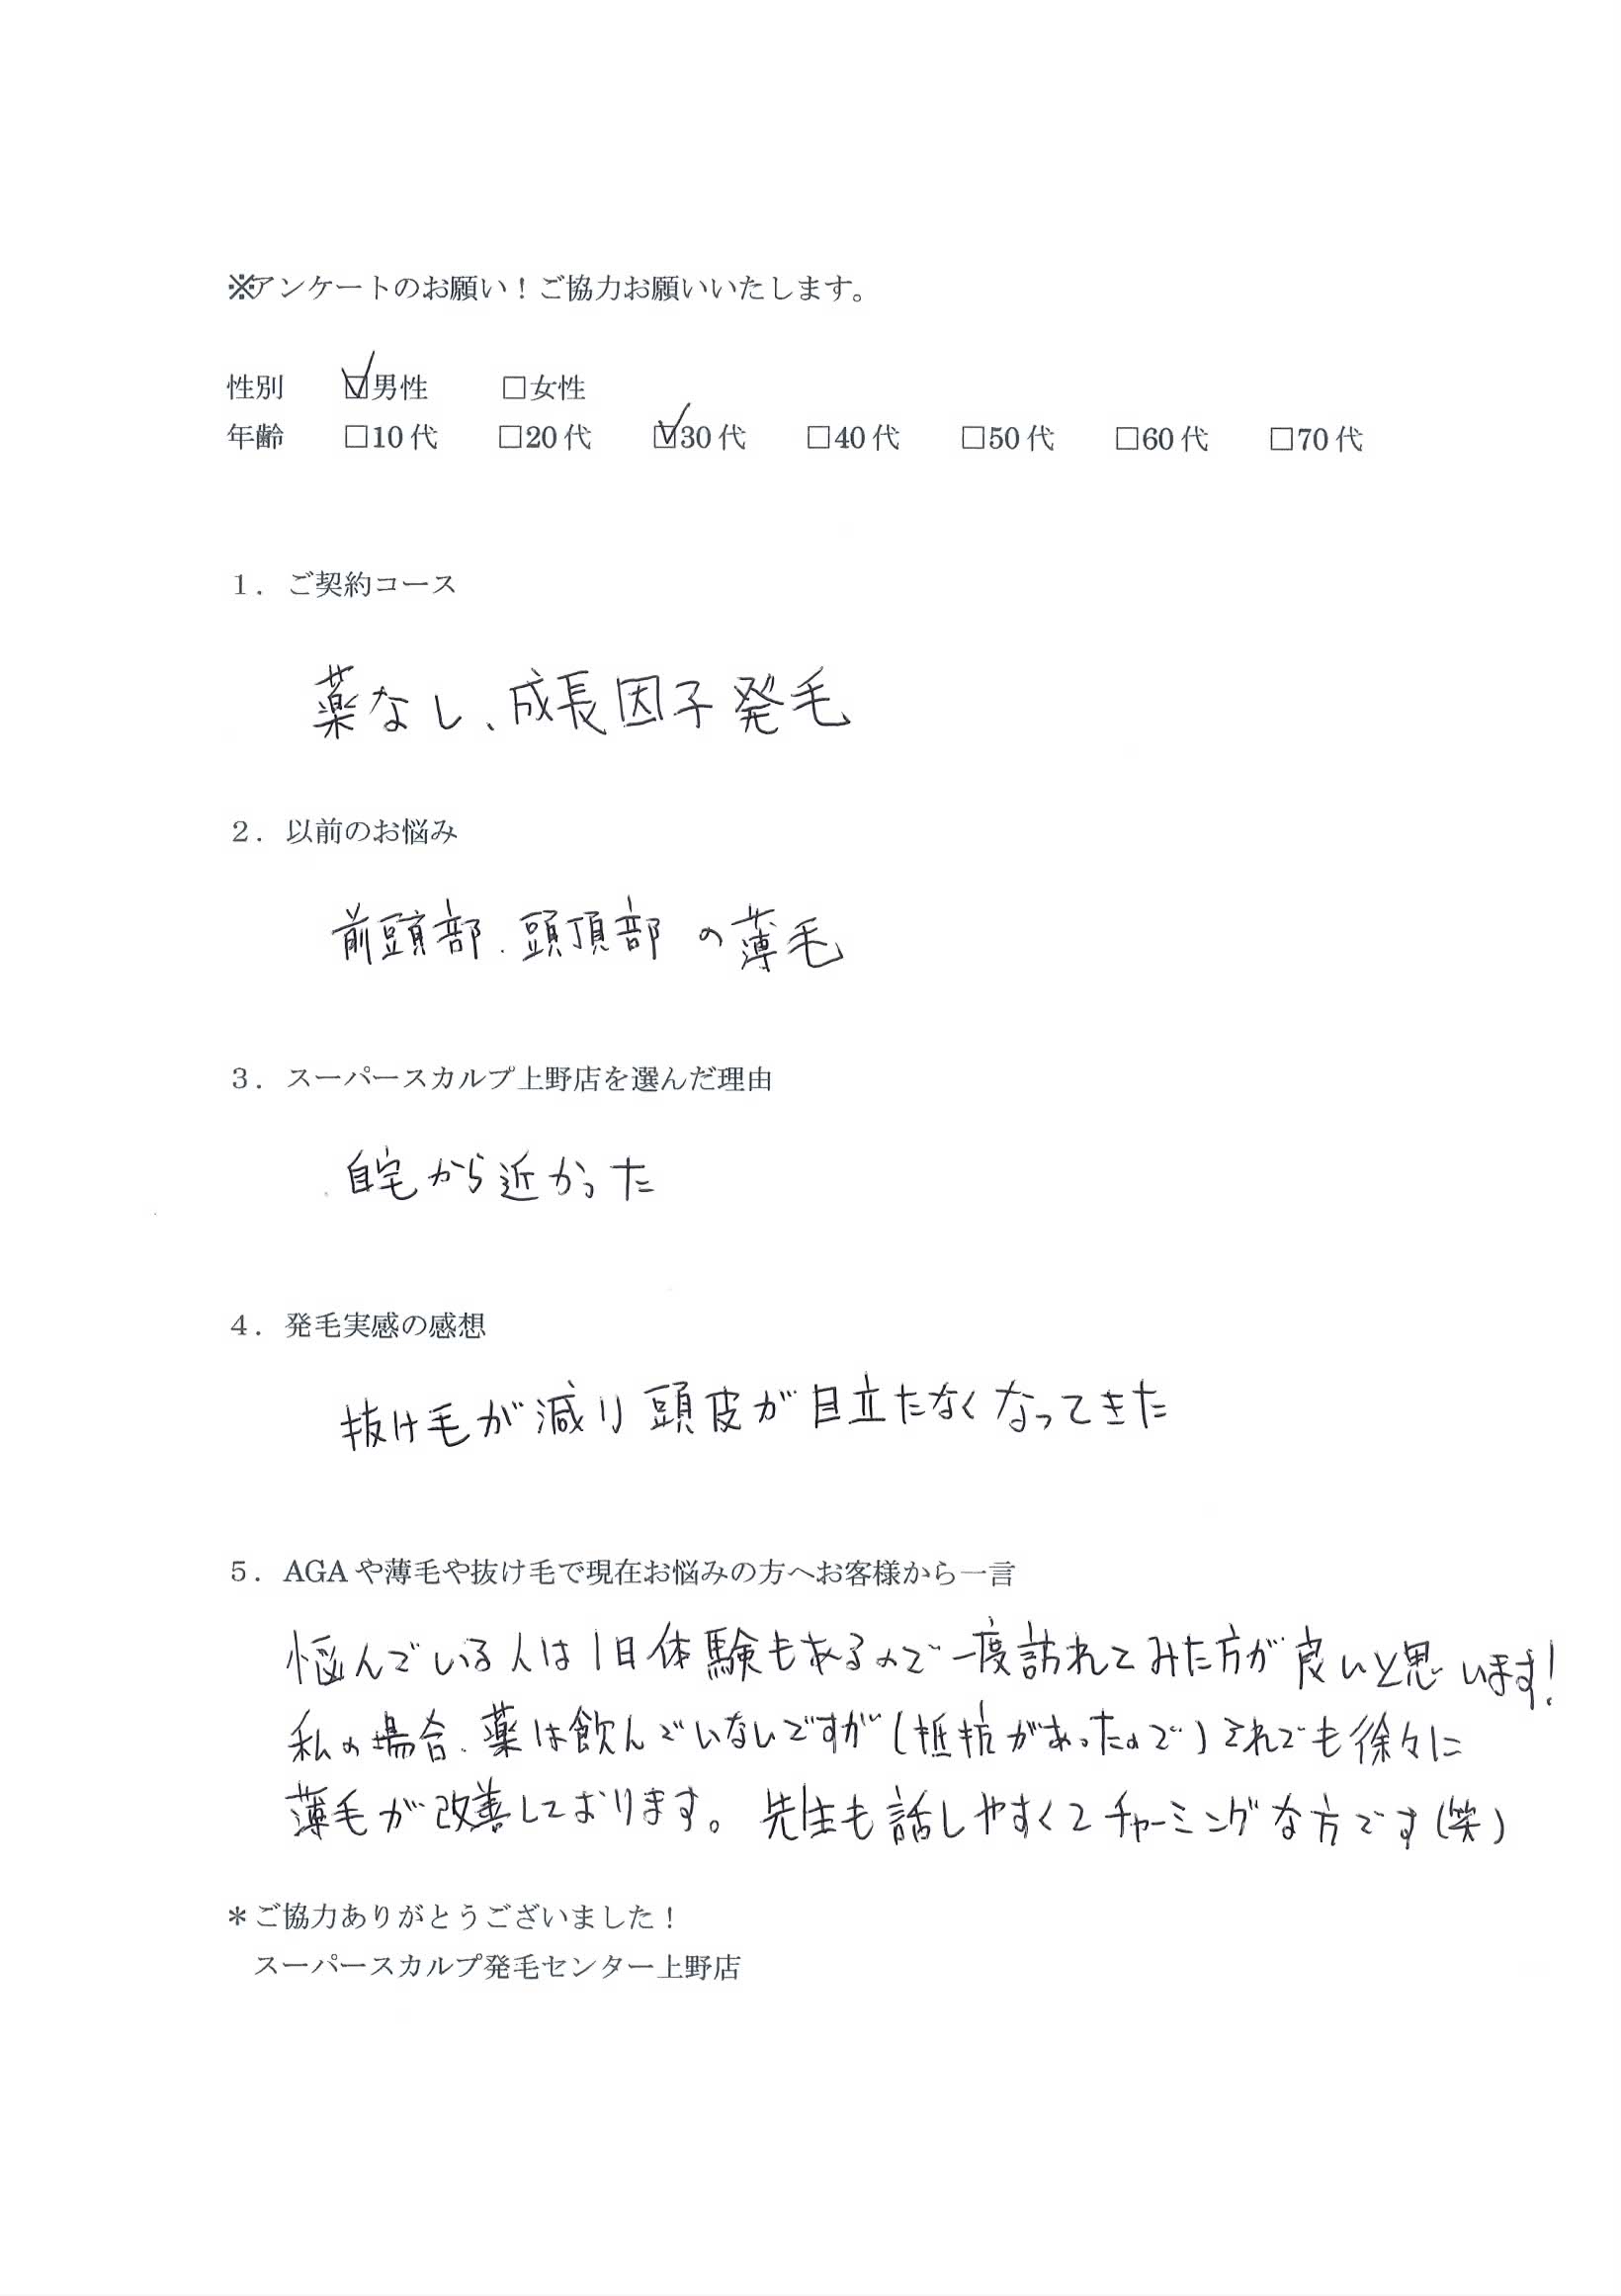 ※アンケートのお願い！ご協力お願いいたします。
性別　☑男性　□女性
年齢　□10代　□20代　☑30代　□40代　□50代　□60代　□70代
１．ご契約コース
薬なし、成長因子発毛
２．以前のお悩み
前頭部、頭頂部の薄毛
３．スーパースカルプ上野店を選んだ理由
自宅から近かった
４．発毛実感の感想
抜け毛が減り頭皮が目立たなくなってきた
５．AGAや薄毛や抜け毛で現在お悩みの方へお客様から一言
悩んでいる人は1日体験もあるので一度訪れてみた方が良いと思います！
私の場合、薬は飲んでいないですが（抵抗があったので）それでも徐々に
薄毛が改善しております。先生も話しやすくてチャーミングな方です（笑）
＊ご協力ありがとうございました！
スーパースカルプ発毛センター上野店